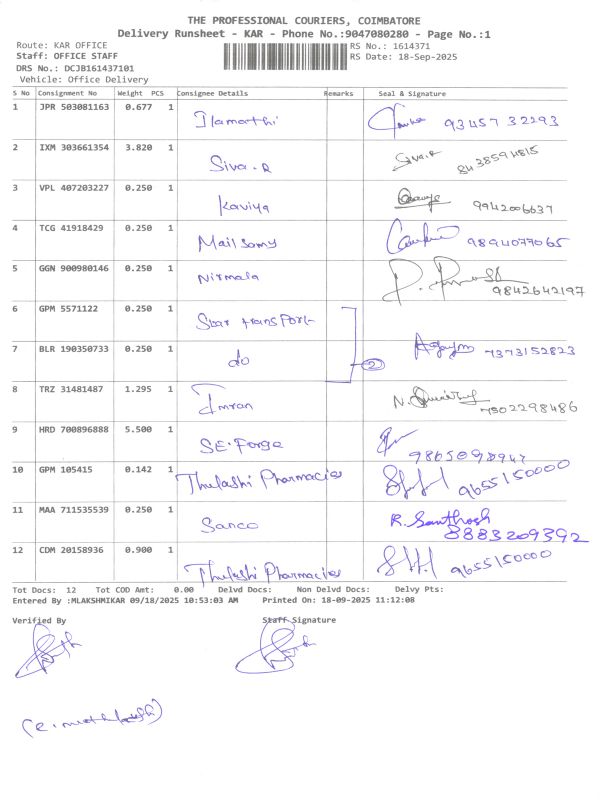 THE PROFESSIONAL COURIERS, COIMBATORE
Delivery Runsheet - KAR - Phone No.:9047080280 - Page No.:1
Route: KAR OFFICE RS No.: 1614371
Staff: OFFICE STAFF RS Date: 18-Sep-2025
DRS No.: DCJB161437101
Vehicle: Office Delivery
S No Consignment No Weight PCS Consignee Details Remarks Seal & Signature
1 JPR 503081163 0.677 1 Ilamathi 93457 32293
2 IXM 303661354 3.820 1 Siva.R Siva.R 8438594815
3 VPL 407203227 0.250 1 Kaviya 9942006637
4 TCG 41918429 0.250 1 Mailsamy 9894077065
5 GGN 900980146 0.250 1 Nirmala 9842642197
6 GPM 5571122 0.250 1 Star transport
7 BLR 190350733 0.250 1 do 2 7373152823
8 TRZ 31481487 1.295 1 Imran 7502298486
9 HRD 700896888 5.500 1 SE.Forge
10 GPM 105415 0.142 1 Thulashi Pharmacies 9655150000
11 MAA 711535539 0.250 1 Sanco R. Santhosh 8883209392
12 CDM 20158936 0.900 1 Thulashi Pharmacies 9655150000
Tot Docs: 12 Tot COD Amt: 0.00 Delvd Docs: Non Delvd Docs: Delvy Pts:
Entered By :MLAKSHMIKAR 09/18/2025 10:53:03 AM Printed On: 18-09-2025 11:12:08
Verified By Staff Signature